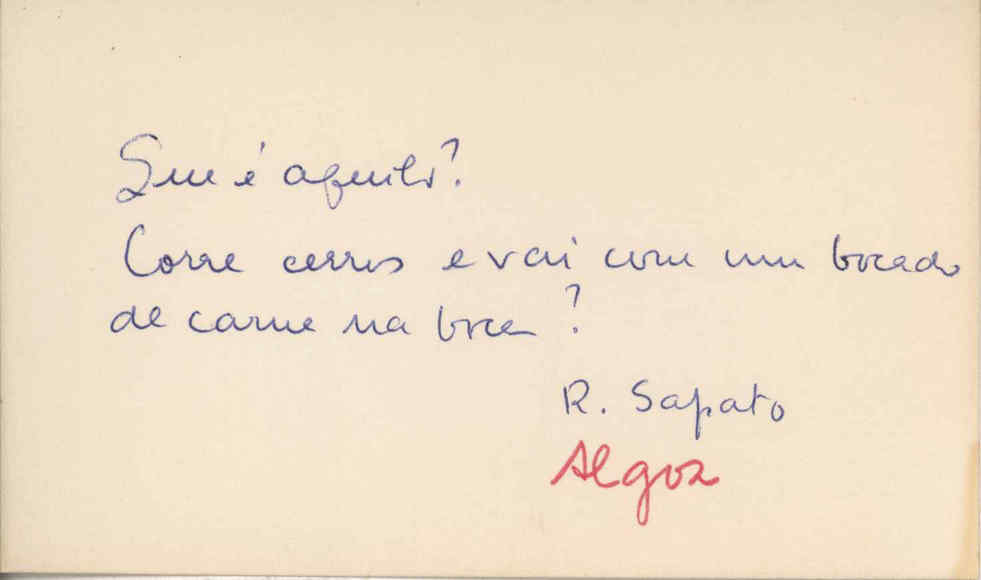 Que é aquilo?
Corre cerros e vai com um bocado
de carne na boca?
R. Sapato
Algoz